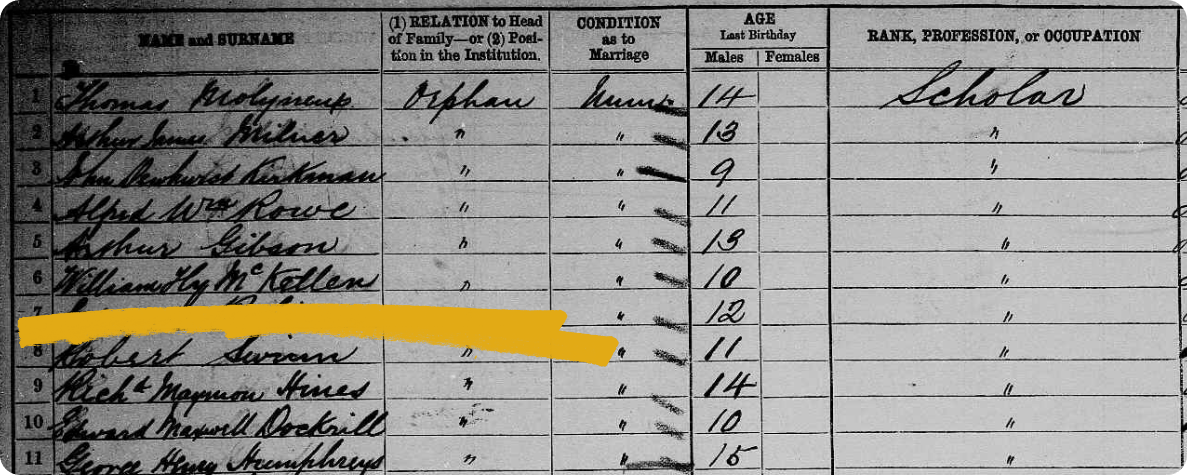 NAME and SURNAME (1) RELATION to Head of Family—or (2) Position in the Institution. CONDITION as to Marriage AGE Last Birthday Males Females RANK, PROFESSION, or OCCUPATION
1 Thomas Molyneux Orphan 14 Scholar
2 Arthur James Milner " " 13 "
3 John Kirkman " " 9 "
4 Alfred Wm Rowe " " 11 "
5 Arthur Gibson " " 13 "
6 William Hy McKellen " " 10 "
7 " 12 "
8 Robert " " 11 "
9 Richd Hines " " 14 "
10 Edward Maxwell Dockrill " " 10 "
11 George Henry Humphreys " " 15 "